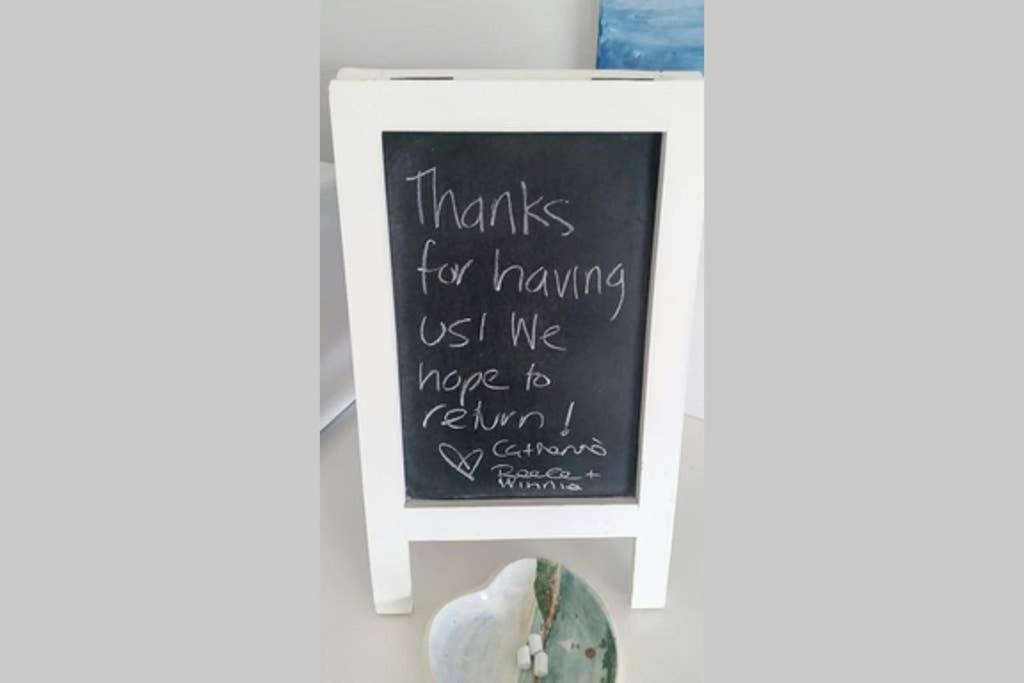 Thanks
for having
us! We
hope to
return!
Reece +
Winnie